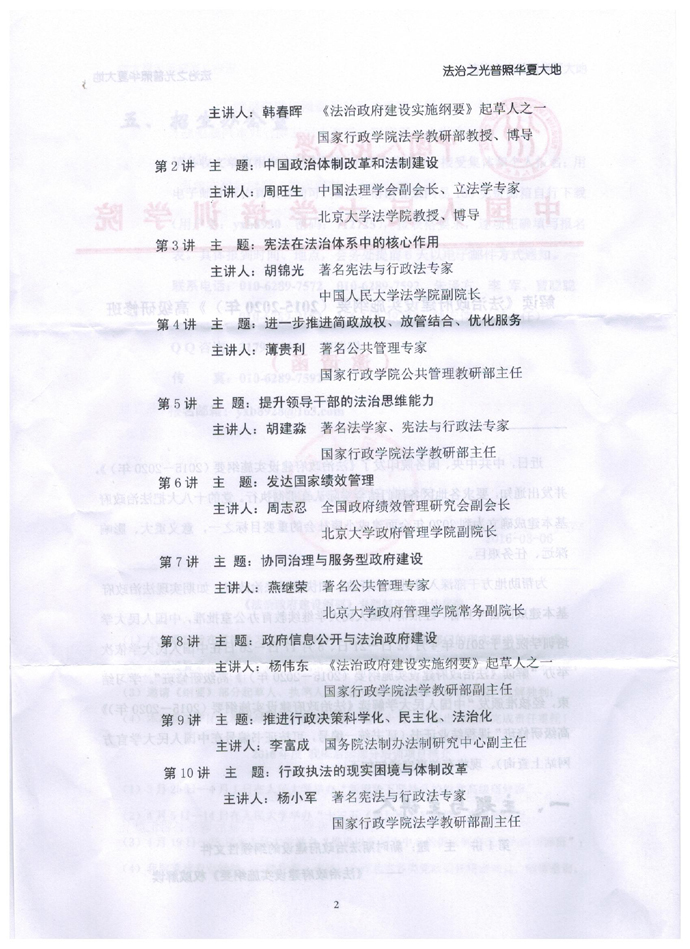 法治之光普照华夏大地
主讲人：韩春晖 《法治政府建设实施纲要》起草人之一
国家行政学院法学教研部教授、博导
第2讲 主 题：中国政治体制改革和法制建设
主讲人：周旺生 中国法理学会副会长、立法学专家
北京大学法学院教授、博导
第3讲 主 题：宪法在法治体系中的核心作用
主讲人：胡锦光 著名宪法与行政法专家
中国人民大学法学院副院长
第4讲 主 题：进一步推进简政放权、放管结合、优化服务
主讲人：薄贵利 著名公共管理专家
国家行政学院公共管理教研部主任
第5讲 主 题：提升领导干部的法治思维能力
主讲人：胡建淼 著名法学家、宪法与行政法专家
国家行政学院法学教研部主任
第6讲 主 题：发达国家绩效管理
主讲人：周志忍 全国政府绩效管理研究会副会长
北京大学政府管理学院副院长
第7讲 主 题：协同治理与服务型政府建设
主讲人：燕继荣 著名公共管理专家
北京大学政府管理学院常务副院长
第8讲 主 题：政府信息公开与法治政府建设
主讲人：杨伟东 《法治政府建设实施纲要》起草人之一
国家行政学院法学教研部副主任
第9讲 主 题：推进行政决策科学化、民主化、法治化
主讲人：李富成 国务院法制办法制研究中心副主任
第10讲 主 题：行政执法的现实困境与体制改革
主讲人：杨小军 著名宪法与行政法专家
国家行政学院法学教研部副主任
2